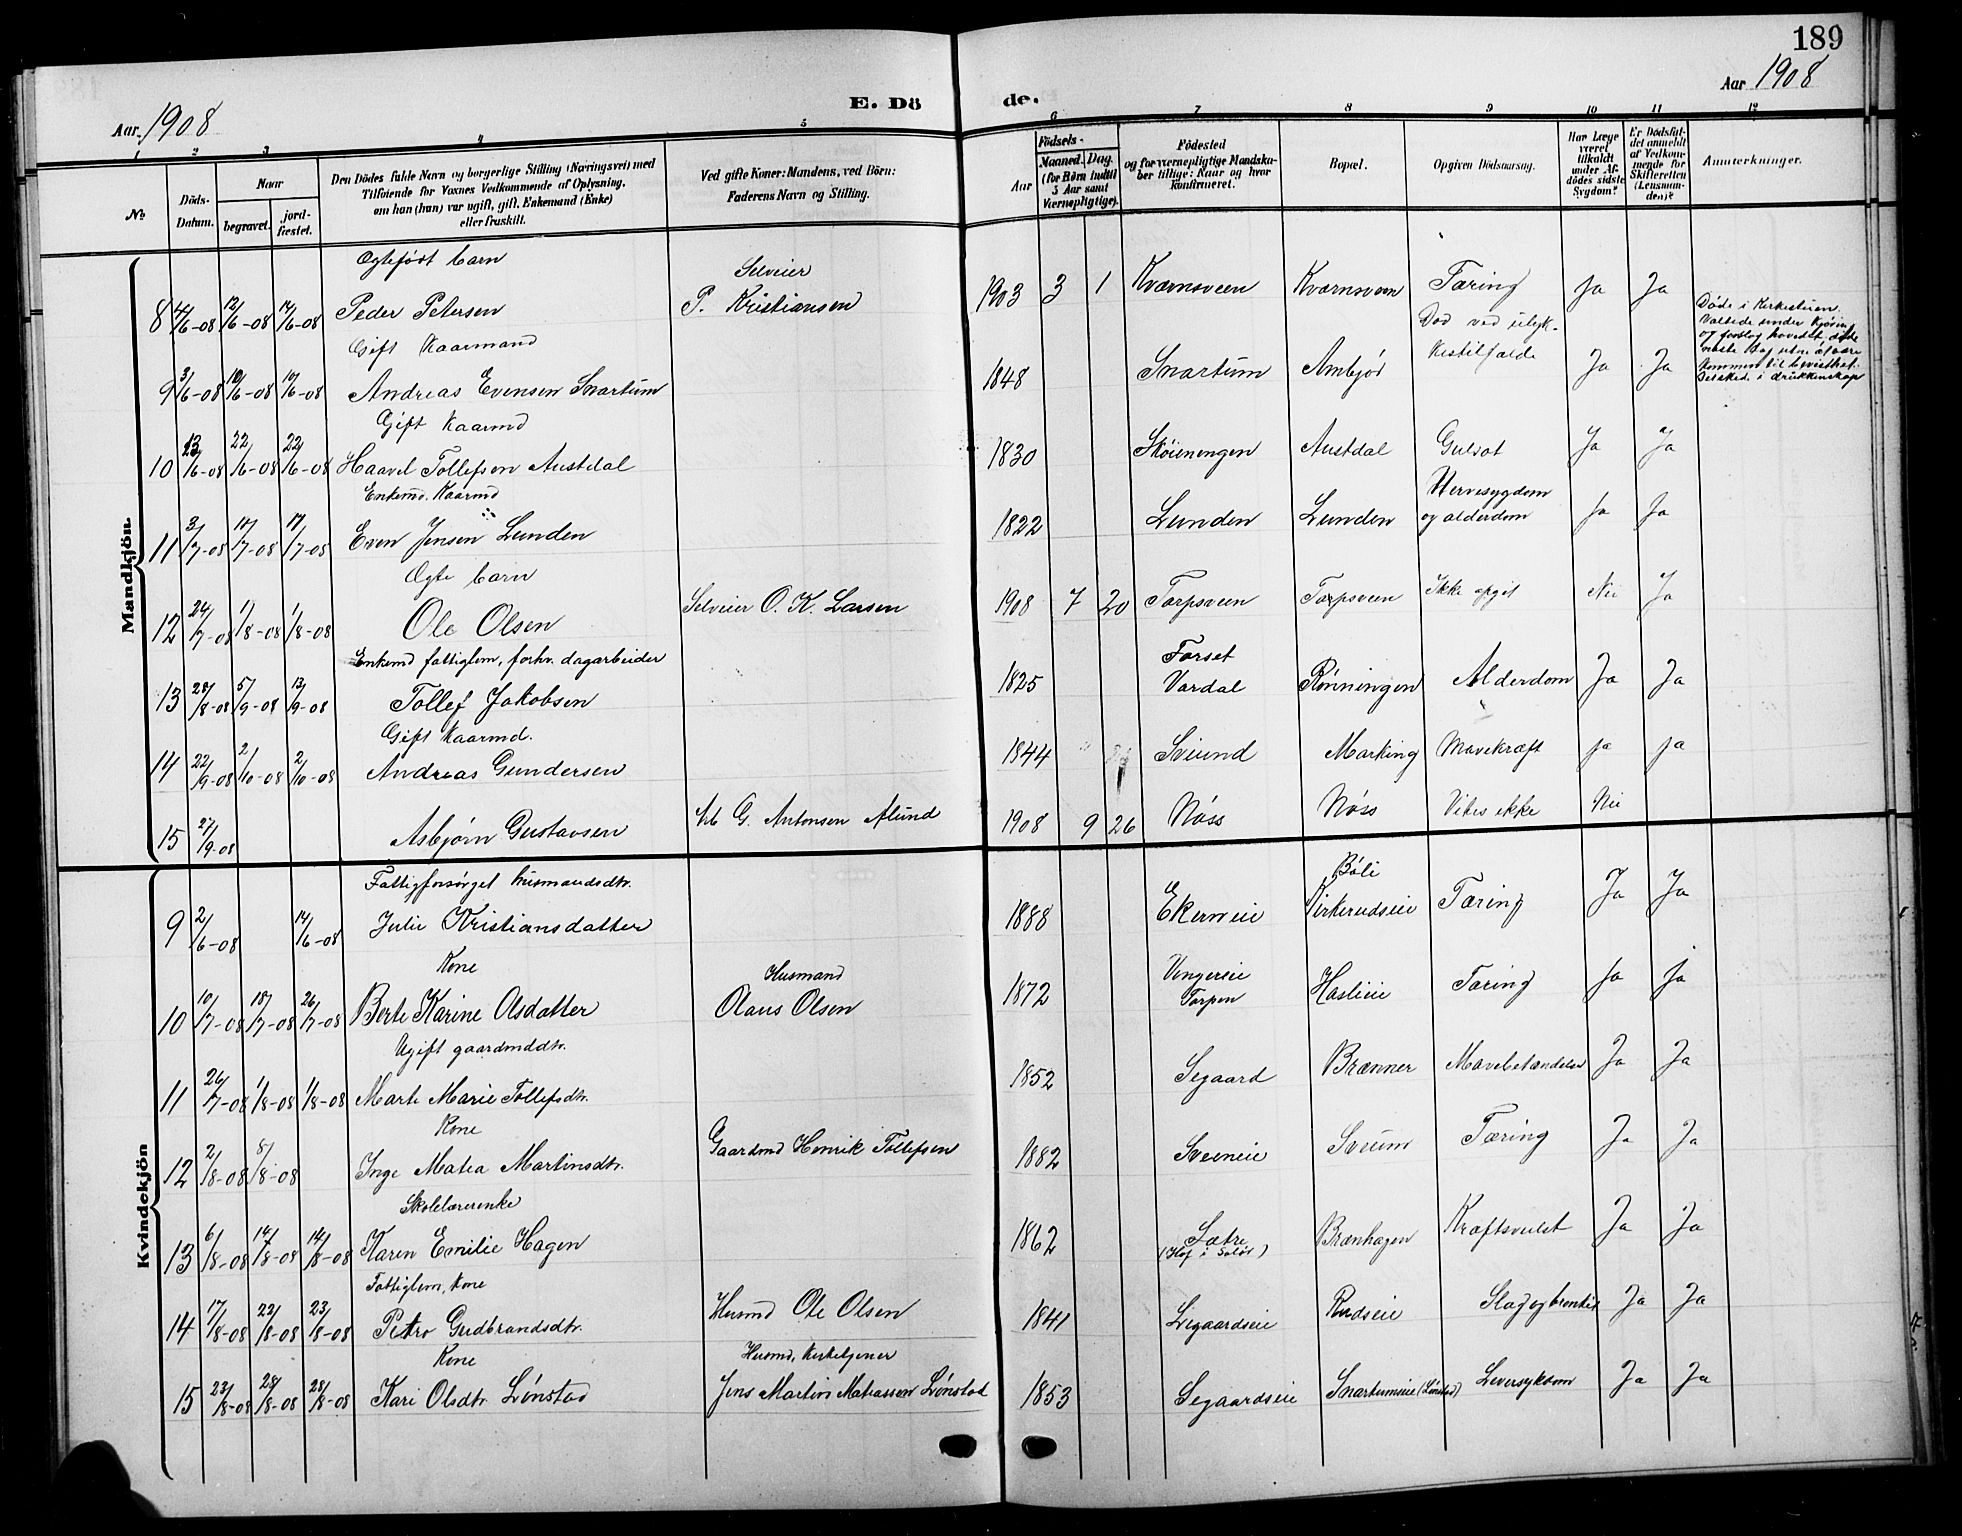 189
Aar 1908
E. Döde.
Aar 1908
1 2 3 4 5 6 7 8 9 10 11 12
No
Döds-Datum.
Naar
begravet.
jord-fæstet.
Den Dödes fulde Navn og borgerlige Stilling (Næringsvei) med
Tilföiende for Voxnes Vedkommende af Oplysning,
om han (hun) var ugift, gift, Enkemand (Enke)
eller fraskilt.
Ved gifte Koner: Mandens, ved Börn:
Faderens Navn og Stilling.
Födsels-
Aar
Maaned. Dag.
(for Børn indtil
5 Aar samt
Værnepligtige).
Födested
og for værnepligtige Mandska-
ber tillige: Naar og hvor
konfirmeret.
Bopæl.
Opgiven Dödsaarsag.
Har Læge
været
tilkaldt
under Af-
dödes sidste
Sygdom?
Er Dödsfal-
det anmeldt
af Vedkom-
mende for
Skifteretten
(Lensman-
den)?
Anmærkninger.
Mandkjön
Ægtefödt barn Selveier
8 4/6-08 12/6-08 14/6-08 Peder Petersen P. Kristiansen 1903 3 1 Kværnsveen Kværnsveen Tæring Ja Ja
Gift Kaarmand Död ved ulyk-
9 3/6-08 10/6-08 10/6-08 Andreas Evensen Snartum 1848 Snartum Ambjör kestilfælde Ja Ja
Döde i Kirkestuen.
Væltede under Kjöring
og forslog hovedet, döde
næste Dag uten at være
kommen til bevisthet.
Det skede i drukkenskap
Gift Kaarmd
10 13/6-08 22/6-08 22/6-08 Haavel Tollefsen Austdal 1830 Sköieningen Austdal Gulsot Ja Ja
Enkemd. Kaarmd Nervesygdom
11 3/7-08 17/7-08 17/7-08 Even Jensen Lunden 1822 Lunden Lunden og alderdom Ja Ja
Ægte barn
12 24/7-08 1/8-08 1/8-08 Ole Olsen Selveier O. K. Larsen 1908 7 20 Torpsveen Torpsveen Ikke opgit Nei Ja
Enkemd fattiglem, forhv. dagarbeider Forset
13 28/8-08 5/9-08 13/9-08 Tollef Jakobsen 1825 Vardal Rönningen Alderdom Ja Ja
Gift Kaarmd.
14 22/9-08 2/10-08 2/10-08 Andreas Gundersen 1844 Sveund Marking Mavekræft ja ja
15 27/9-08 Asbjørn Gustavsen G. Antonsen Alund 1908 9 26 Nøss Nøss Vites ikke Nei
Kvindekjön
Fattigforsørget husmandsdtr. Böli
9 2/6-08 14/6-08 Julie Kristiansdatter 1888 Ekerneie Virkerudseie Tæring Ja Ja
Kone Husmand Vengereie
10 10/7-08 18/7-08 26/7-08 Berte Karine Olsdatter Olaus Olsen 1872 Torpen Haslieie Tæring Ja ja
Ugift gaardmddtr.
11 26/7-08 1/8-08 1/8-08 Marte Marie Tollefsdtr. 1852 Segaard Brænner Mavebetændelse Ja Ja
Kone
12 2/8-08 8/8-08 Inge Matea Martinsdtr. Gaardmd Henrik Tollefsen 1882 Sveeneie Sveum Tæring Ja Ja
Skolelærerenke
13 6/8-08 14/8-08 14/8-08 Karen Emilie Hagen 1862 Sætre (Hof i Solör) Brænhagen Kræftsvulst Ja Ja
Fattiglem, kone
14 17/8-08 22/8-08 23/8-08 Petro Gudbrandsdtr. Husmd Ole Olsen 1841 Ligaardseie Rudseie Slag og bronkit Ja Ja
Kone Husmd, Kirketjener
15 23/8-08 28/8-08 28/8-08 Kari Olsdtr. Lønstad Jens Martin Matiassen Lønstad 1853 Segaardseie Snartumseie (Lönstad) Leversykdom Ja Ja